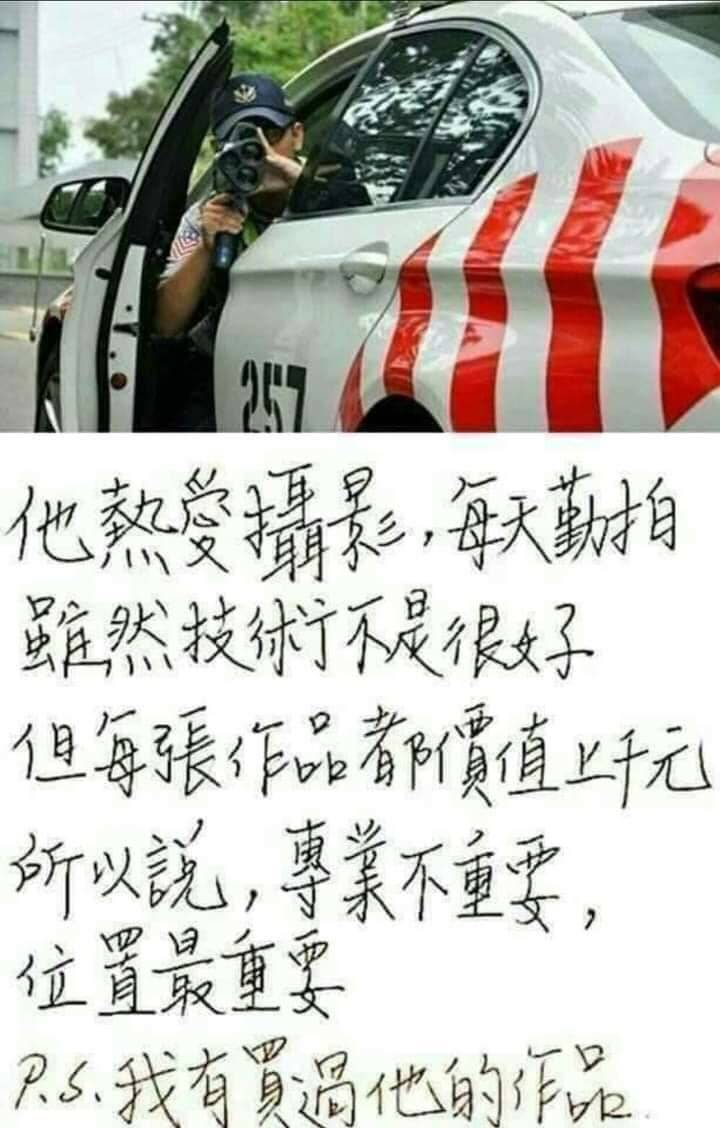 257
他熱愛攝影,每天勤拍
雖然技術不是很好
但每張作品都價值上千元
所以說,專業不重要,
位置最重要
P.S.我有買過他的作品